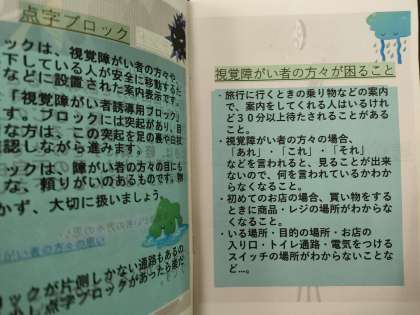 点字ブロック
ックは、視覚障がい者の方々や、
下している人が安全に移動するた
などに設置された案内表示です。
「視覚障がい者誘導用ブロック」
す。ブロックには突起があり、目
な方は、この突起を足の裏や白杖
認しながら進みます。
ックは、障がい者の方々の目にも
な、頼りがいのあるものです。
かず、大切に扱いましょう。
がい者の方々の思い
ロックが片側しかない通路もあるの
少し点字ブロックがあったら楽だ
視覚障がい者の方々が困ること
・旅行に行くときの乗り物などの案内
で、案内をしてくれる人はいるけれ
ど３０分以上待たされることがある
こと。
・視覚障がい者の方々の場合、
「あれ」・「これ」・「それ」
などを言われると、見ることが出来
ないので、何を言われているかわか
らなくなること。
・初めてのお店の場合、買い物をする
ときに商品・レジの場所がわからな
くなること。
・いる場所・目的の場所・お店の
入り口・トイレ通路・電気をつける
スイッチの場所がわからないことな
ど…。